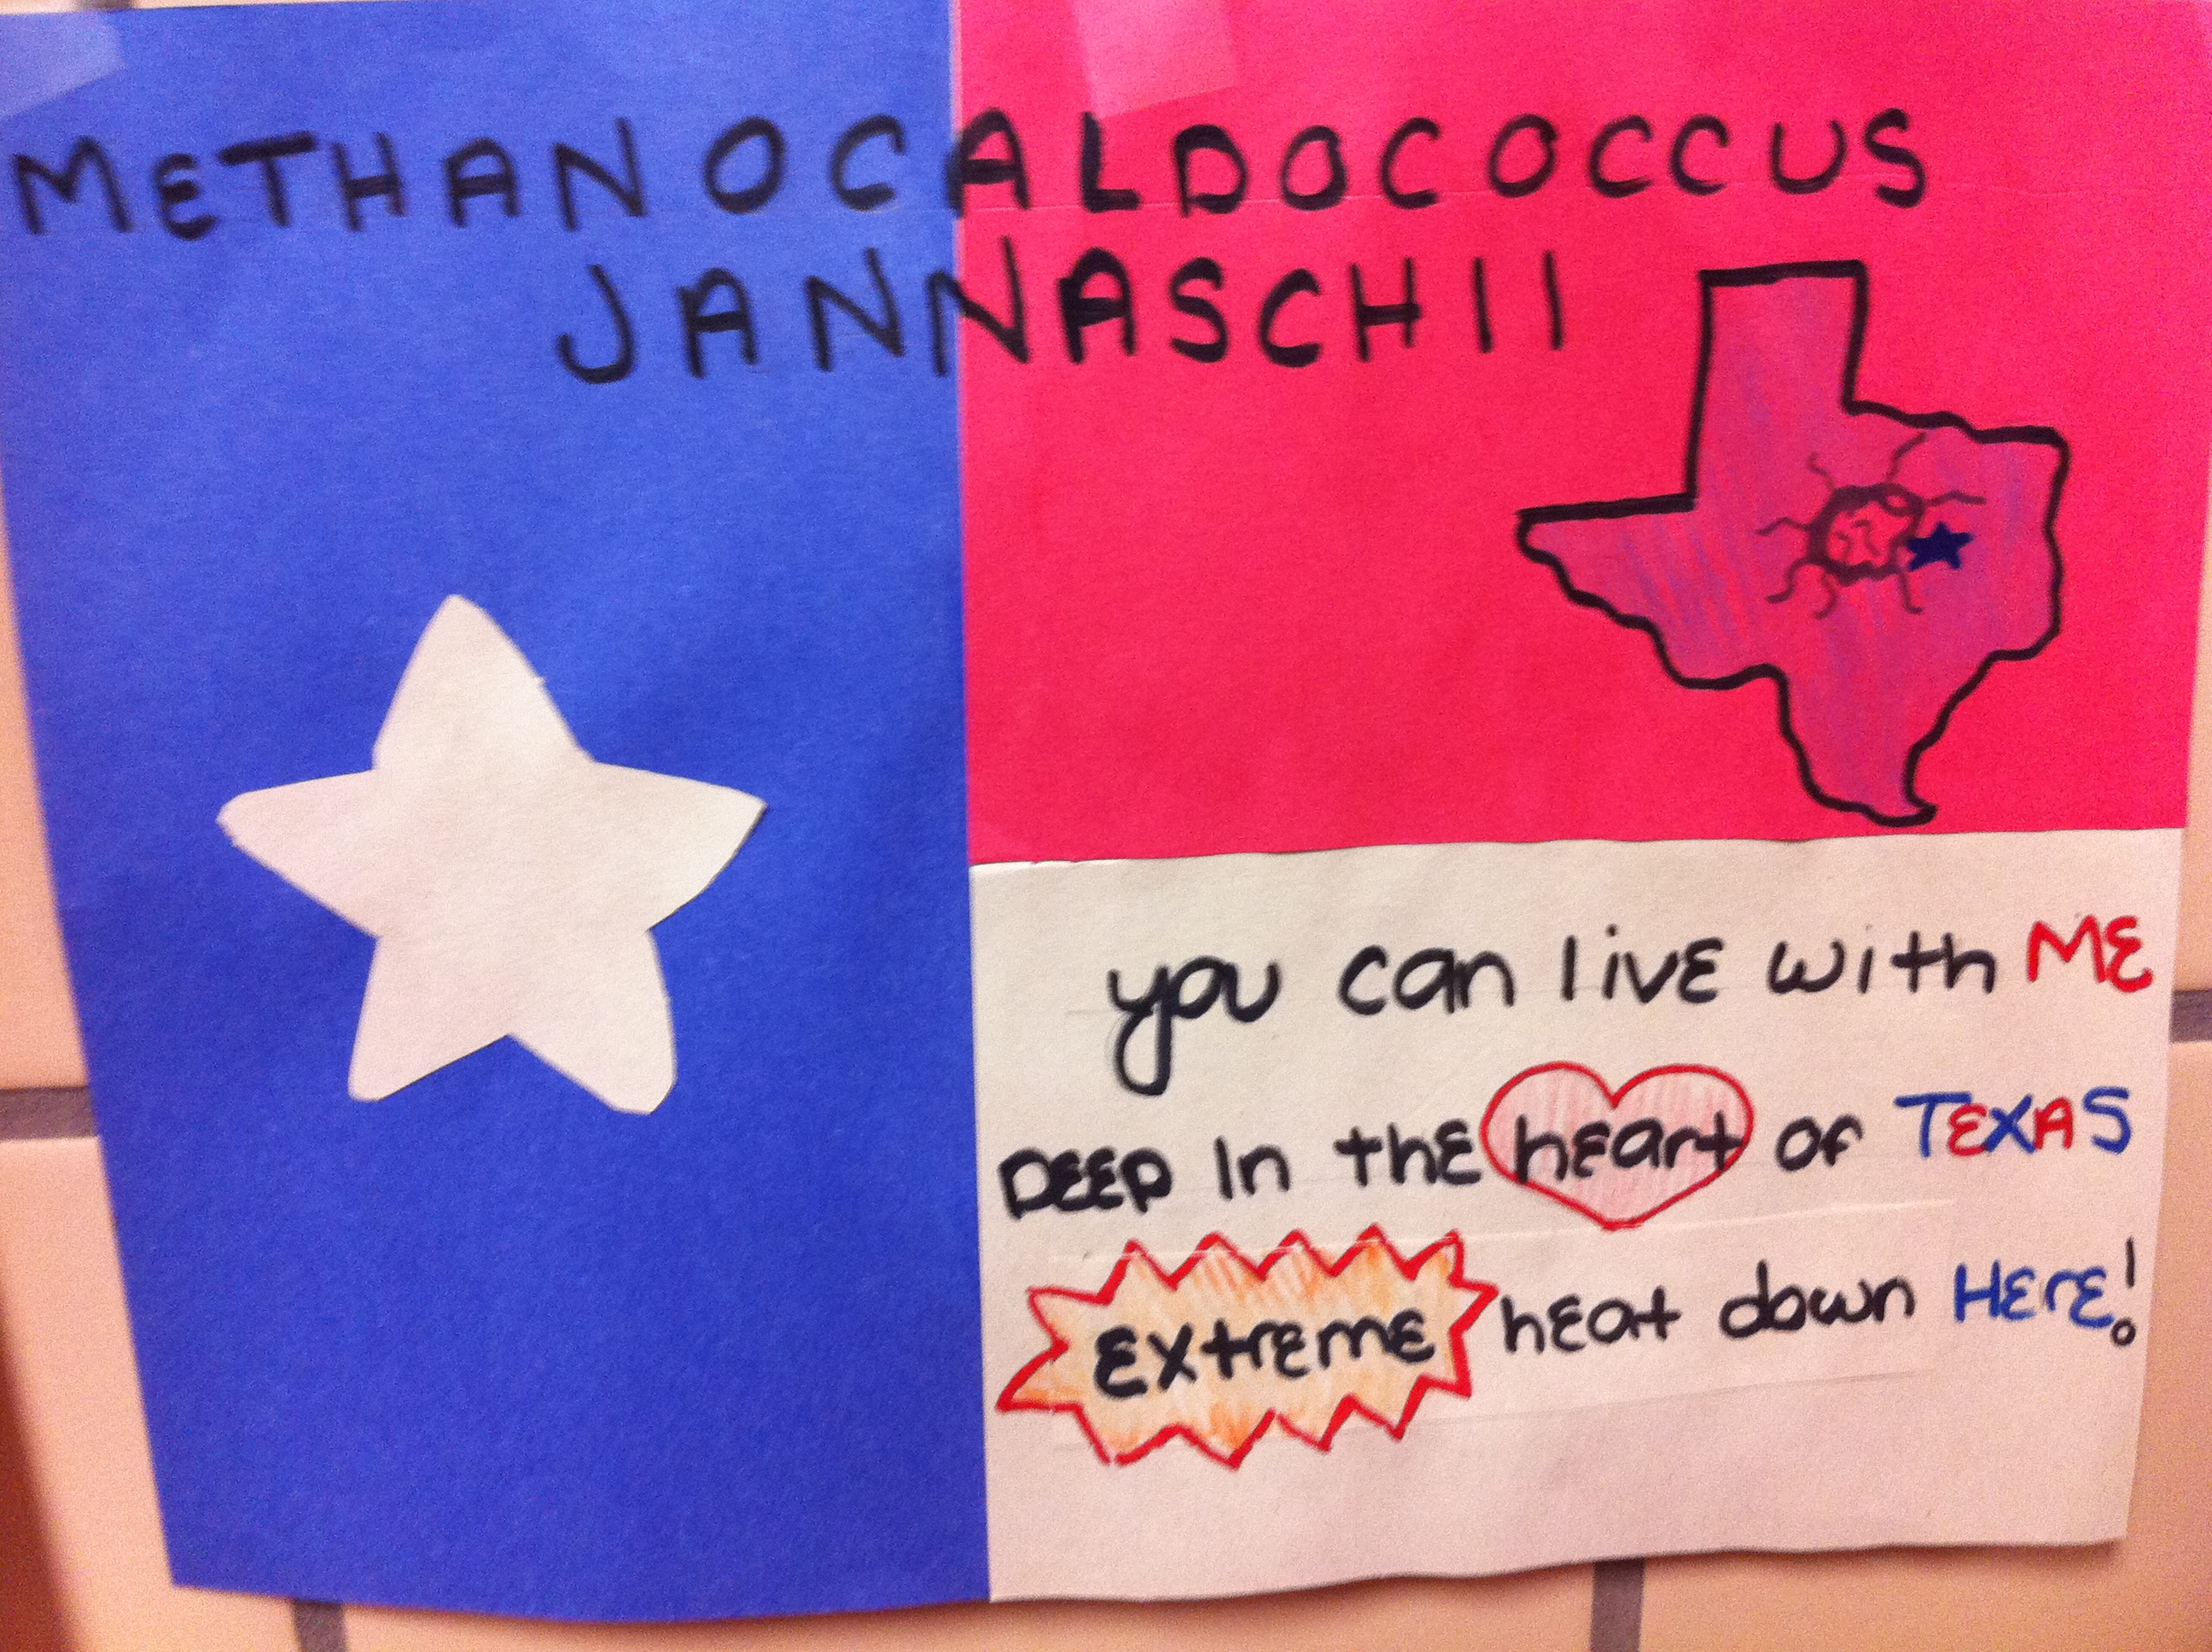 METHANOCALDOCOCCUS
JANNASCHII
you can live with ME
DEEP in the heart of TEXAS
EXtremE heat down HErE!